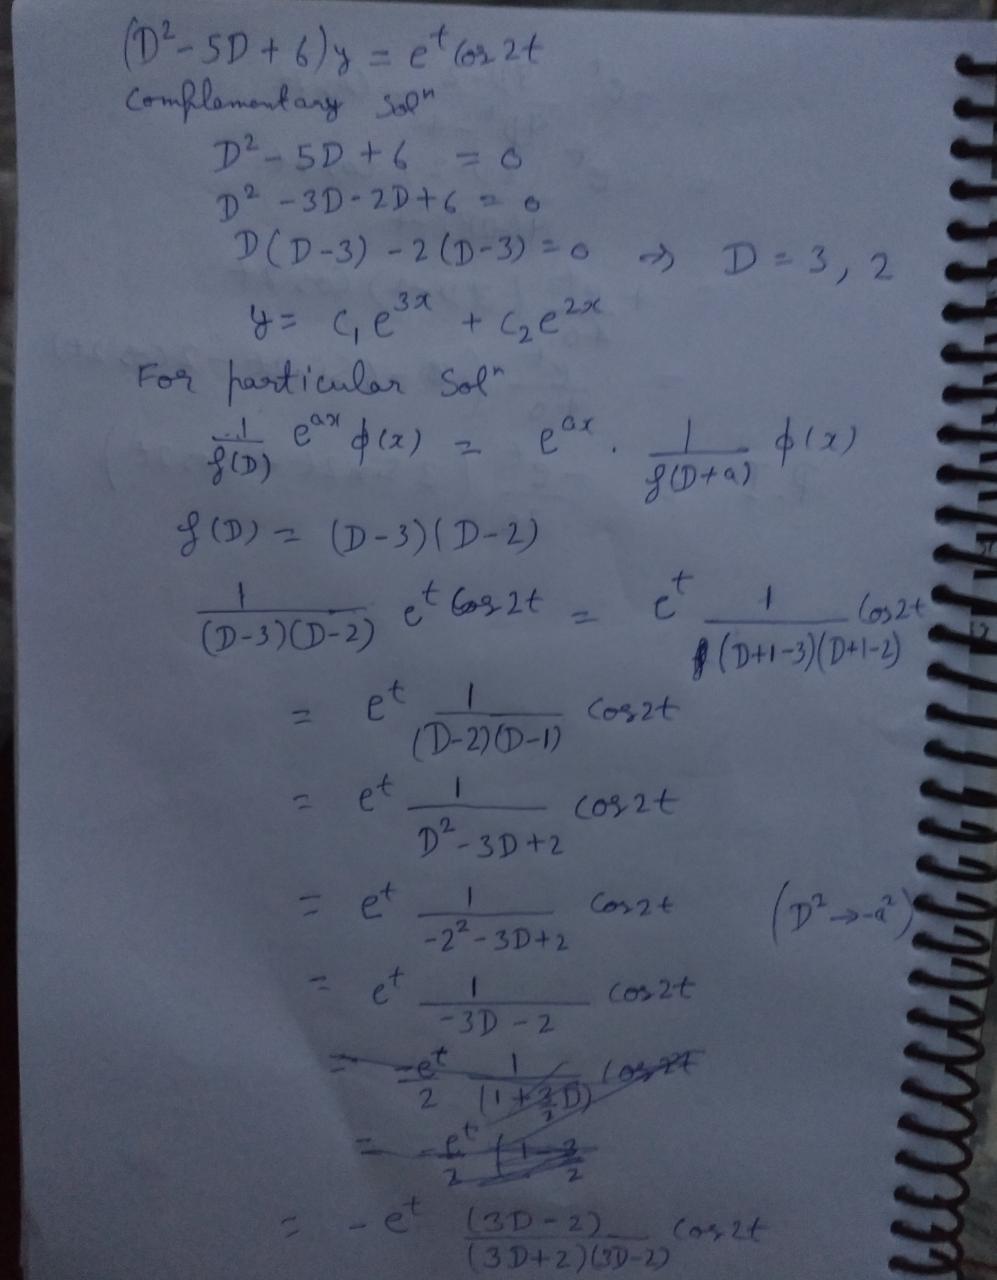 (D² - 5D + 6)y = e^t cos 2t
Complementary Solⁿ
D² - 5D + 6 = 0
D² - 3D - 2D + 6 = 0
D(D-3) - 2(D-3) = 0 ⇒ D = 3, 2
y = C₁e^{3x} + C₂e^{2x}
For particular Solⁿ
1/f(D) e^{ax} φ(x) = e^{ax} . 1/f(D+a) φ(x)
f(D) = (D-3)(D-2)
1/((D-3)(D-2)) e^t Cos 2t = e^t 1/((D+1-3)(D+1-2)) Cos 2t
= e^t 1/((D-2)(D-1)) Cos 2t
= e^t 1/(D² - 3D + 2) cos 2t
= e^t 1/(-2² - 3D + 2) Cos 2t (D² → -a²)
= e^t 1/(-3D - 2) cos 2t
= -e^t/2 1/(1 + 3/2 D) cos 2t
= -e^t/2 (1 - 3/2
= -e^t (3D-2)/((3D+2)(3D-2)) cos 2t